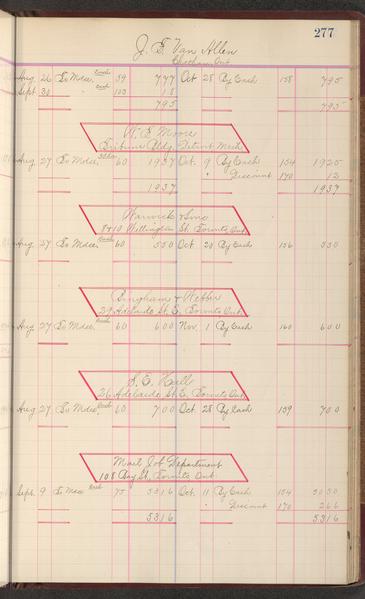 277
J. E. Van Allen
Chatham Ont
Aug. 26 To Mdse. 59 777 Oct 28 By Cash 158 795
Sept. 30 103 18
795 795
W. E. Moore
Tribune Bldg. Detroit Mich
Aug. 27 To Mdse. 60 1937 Oct 9 By Cash 154 1925
" Discount 170 12
1937 1937
Warwick & Sons
8 & 10 Wellington St. Toronto Ont
Aug. 27 To Mdse. 60 550 Oct. 20 By Cash 156 550
Bingham & Webber
29 Adelaide St. E. Toronto Ont.
Aug. 27 To Mdse. 60 600 Nov. 1 By Cash 160 600
26 Adelaide St. E. Toronto Ont
Aug. 27 To Mdse. 60 700 Oct. 28 By Cash 159 700
Mail Job Department
108 Bay St. Toronto Ont.
Sept. 9 To Mdse 75 5316 Oct. 11 By Cash 154 5050
" Discount 170 266
5316 5316